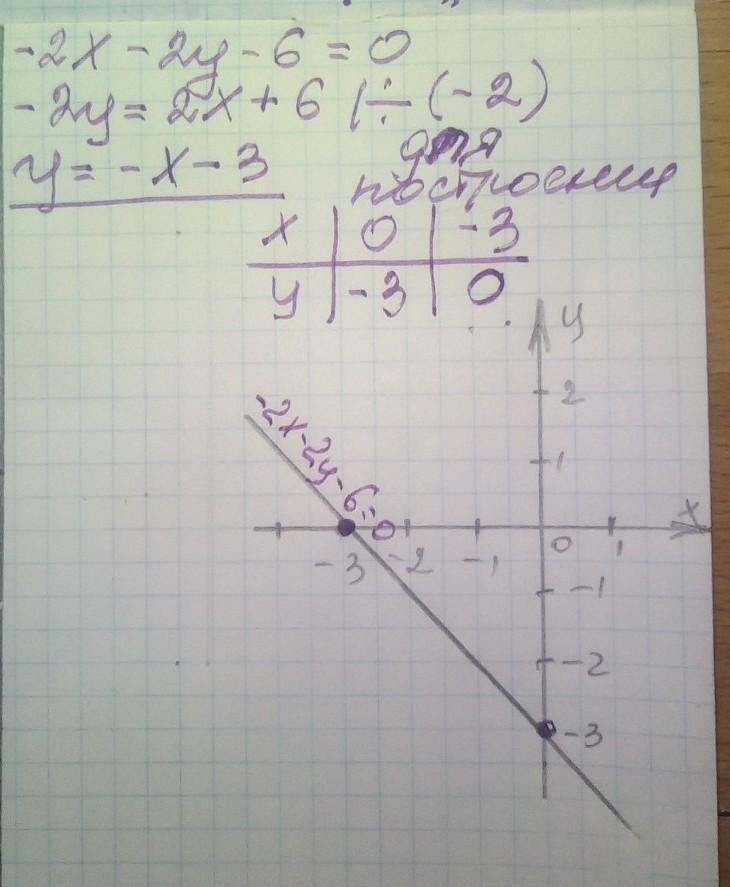 -2x - 2y - 6 = 0
-2y = 2x + 6 | ÷ (-2)
y = -x - 3
для
построения
x | 0 | -3
y | -3 | 0
y
2
1
-2x-2y-6=0
x
-3 -2 -1 0 1
-1
-2
-3